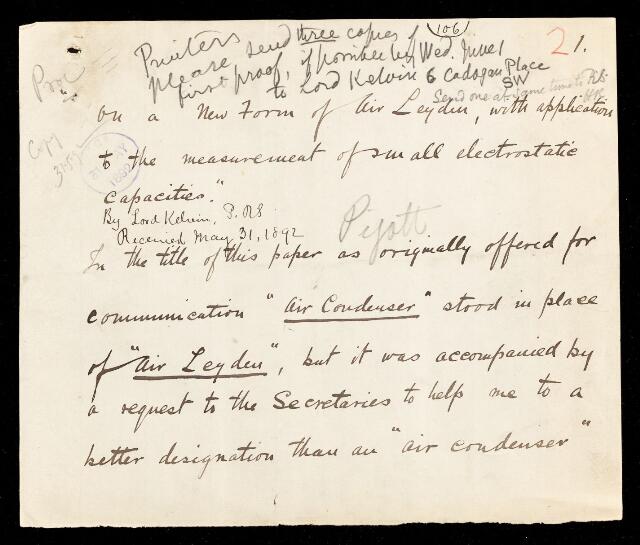 (106)
2 1.
Printers
please send three copies of
first proof, if possible by Wed. June 1
to Lord Kelvin 6 Cadogan Place
SW
Send one at same time to
Copy
MAY
1892
On a New Form of Air Leyden, with application
to the measurement of small electrostatic
capacities."
By Lord Kelvin, P.RS
Received May 31, 1892
In the title of this paper as originally offered for
communication "Air Condenser" stood in place
of "Air Leyden", but it was accompanied by
a request to the Secretaries to help me to a
better designation than an "air condenser"